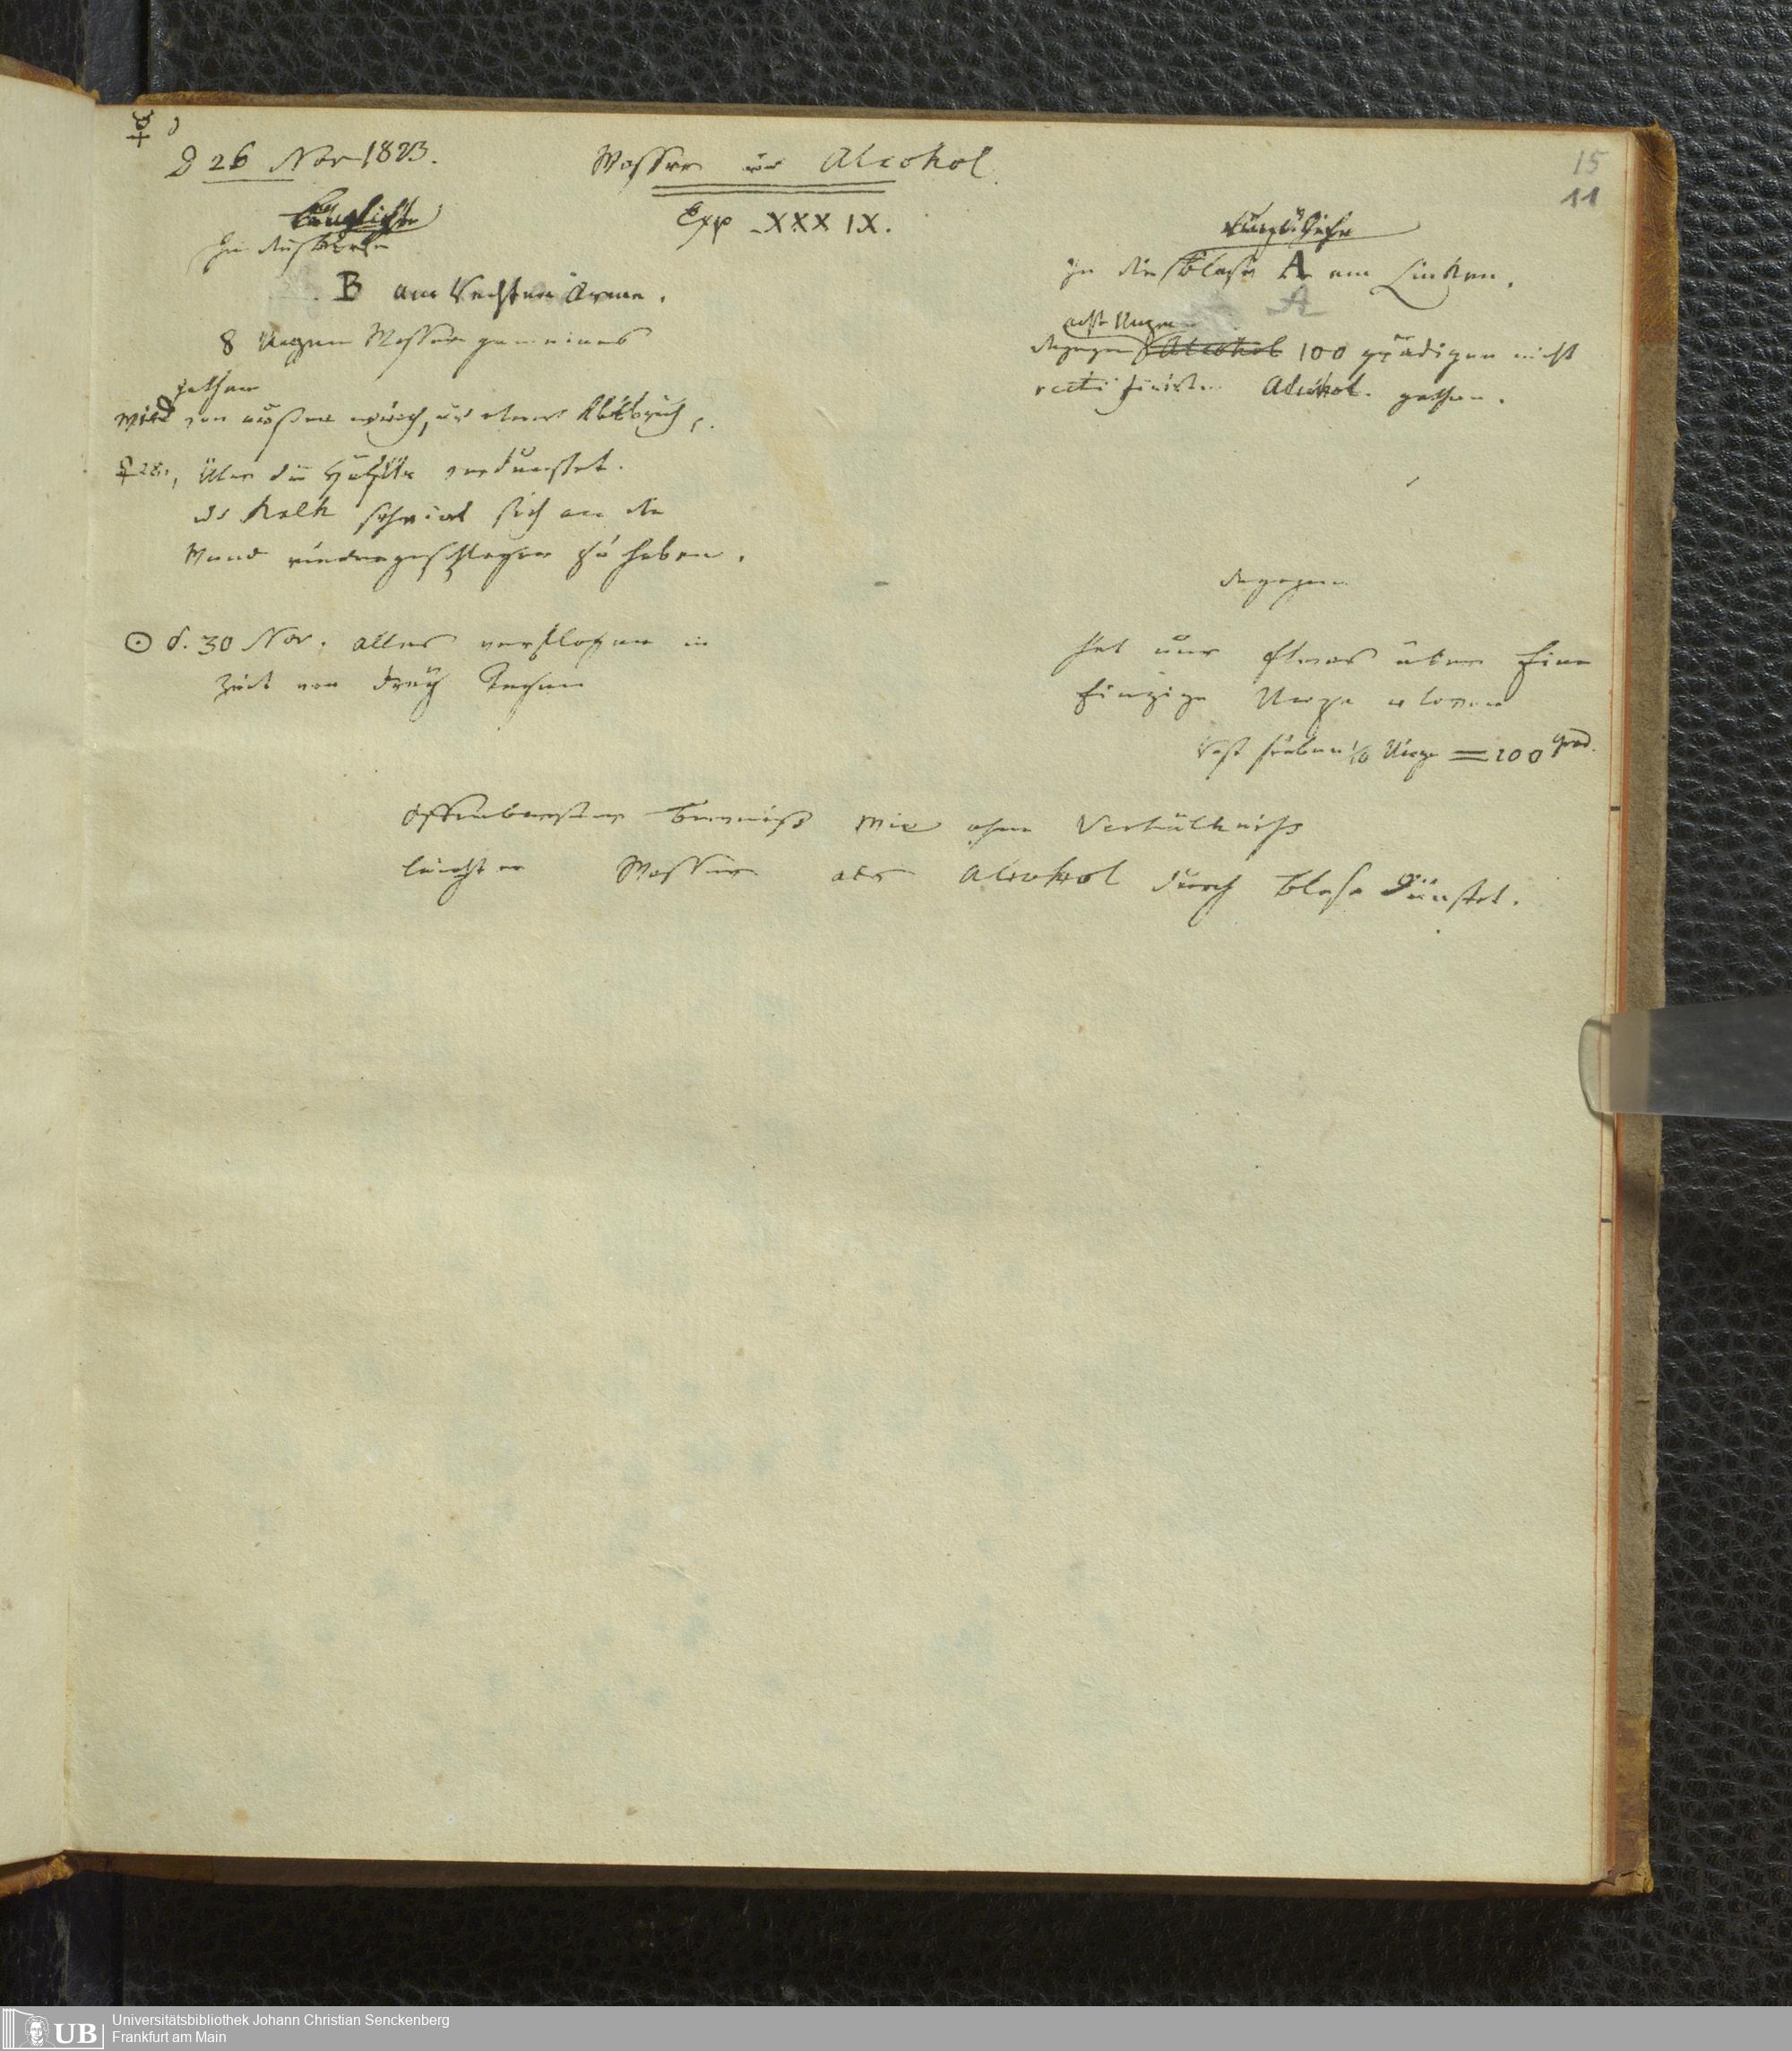 ☿
d 26 Nov 1823.
Wasser und Alcohol.
15
11
Exp. XXXIX.
In die Blase
B am Rechten Arme.
8 Unzen Wasser gemeines
gethan
wird von außen
♀ 28., Über die Hälfte verdunstet.
Kalk scheint sich an die
Wand niedergeschlagen zu haben.
☉ d. 30 Nov. alles verflogen in
Zeit von drey Tagen
In die Blase A am Linken.
A
acht Unzen
dagegen Alcohol 100 grädigen nicht
rectificirten Alcohol. gethan.
dagegen
hat nur etwas über Eine
Einzige Unze verloren
Rest sieben 1/10 Unze = 100 Grad.
offenbarster Beweiß wie ohne Verhältniß
leichter Wasser als Alcohol durch Blase dünstet.
UB
Universitätsbibliothek Johann Christian Senckenberg
Frankfurt am Main